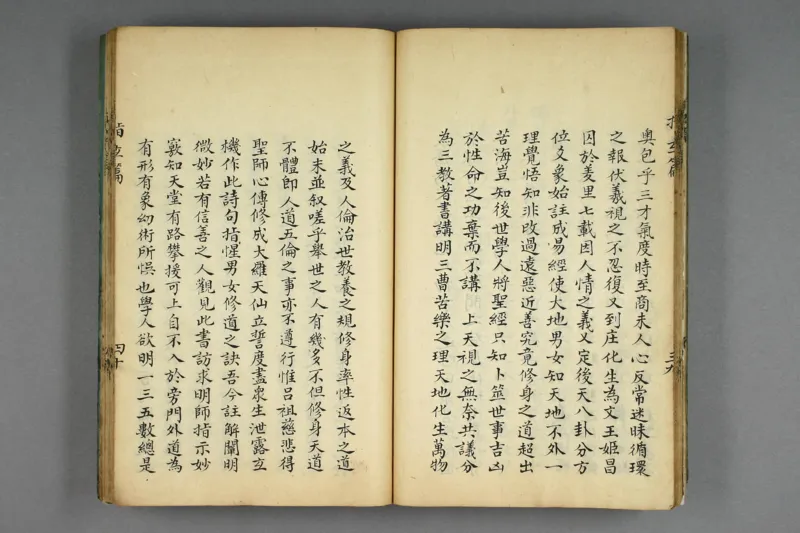 奥包乎三才氣度時至商末人心反常迷昧循環
之報伏羲視之不忍復又到庄化生為文王姬昌
囚於羑里七載因人情之義又定後天八卦分方
位爻象始註成易經使大地男女知天地不外一
理覺悟知非改過遠惡近善究竟修身之道超出
苦海豈知後世學人將聖經只知卜筮世事吉凶
於性命之功棄而不講 上天視之無奈共議分
為三教著書講明三曹苦樂之理天地化生萬物
三九
之義及人倫治世教養之規修身率性返本之道
始末並叙嗟乎舉世之人有幾多不但修身天道
不體即人道五倫之事亦不遵行惟呂祖慈悲得
聖師心傳修成大羅天仙立誓度盡衆生泄露玄
機作此詩句指惺男女修道之訣吾今註解闡明
微妙若有信善之人觀見此書訪求明師指示妙
竅知天堂有路攀援可上自不入於旁門外道為
有形有象幻術所悞也學人欲明一三五數總是
指玄篇
四十